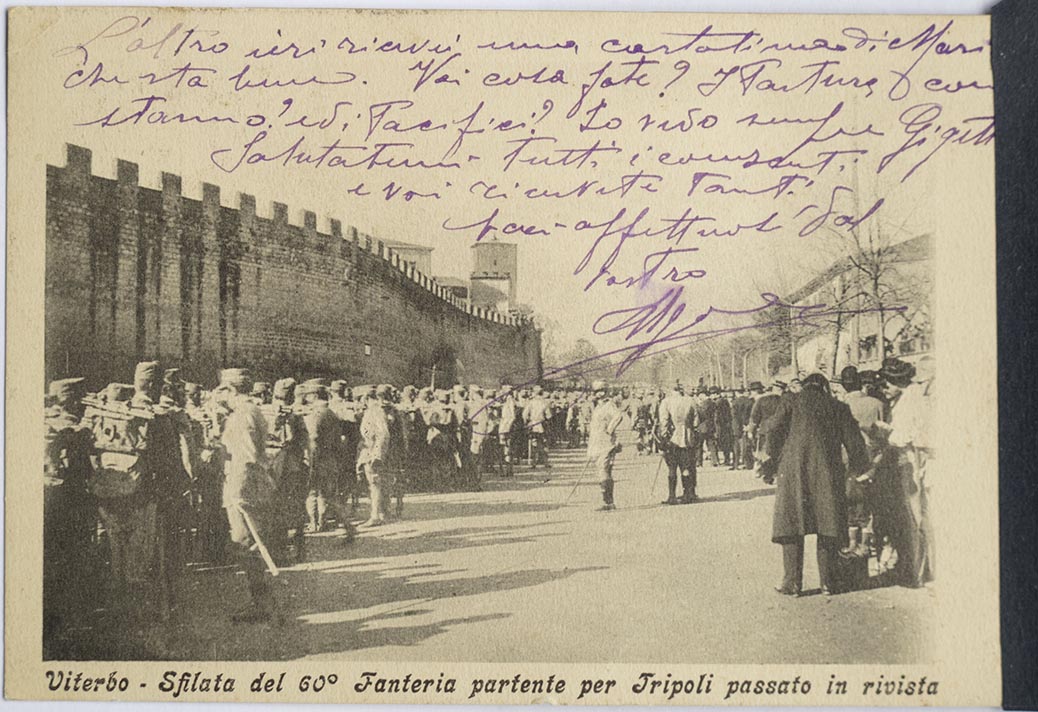 L'altro ieri ricevei una cartolina di Mari
che sta bene. Voi cosa fate? I Tartura, con
stanno? ed i Pacifici? Io vedo sempre Gigett
Salutatemi tutti i consanti
e voi ricevete tanti
baci affettuosi dal
vostro
Viterbo - Sfilata del 60° Fanteria partente per Tripoli passato in rivista